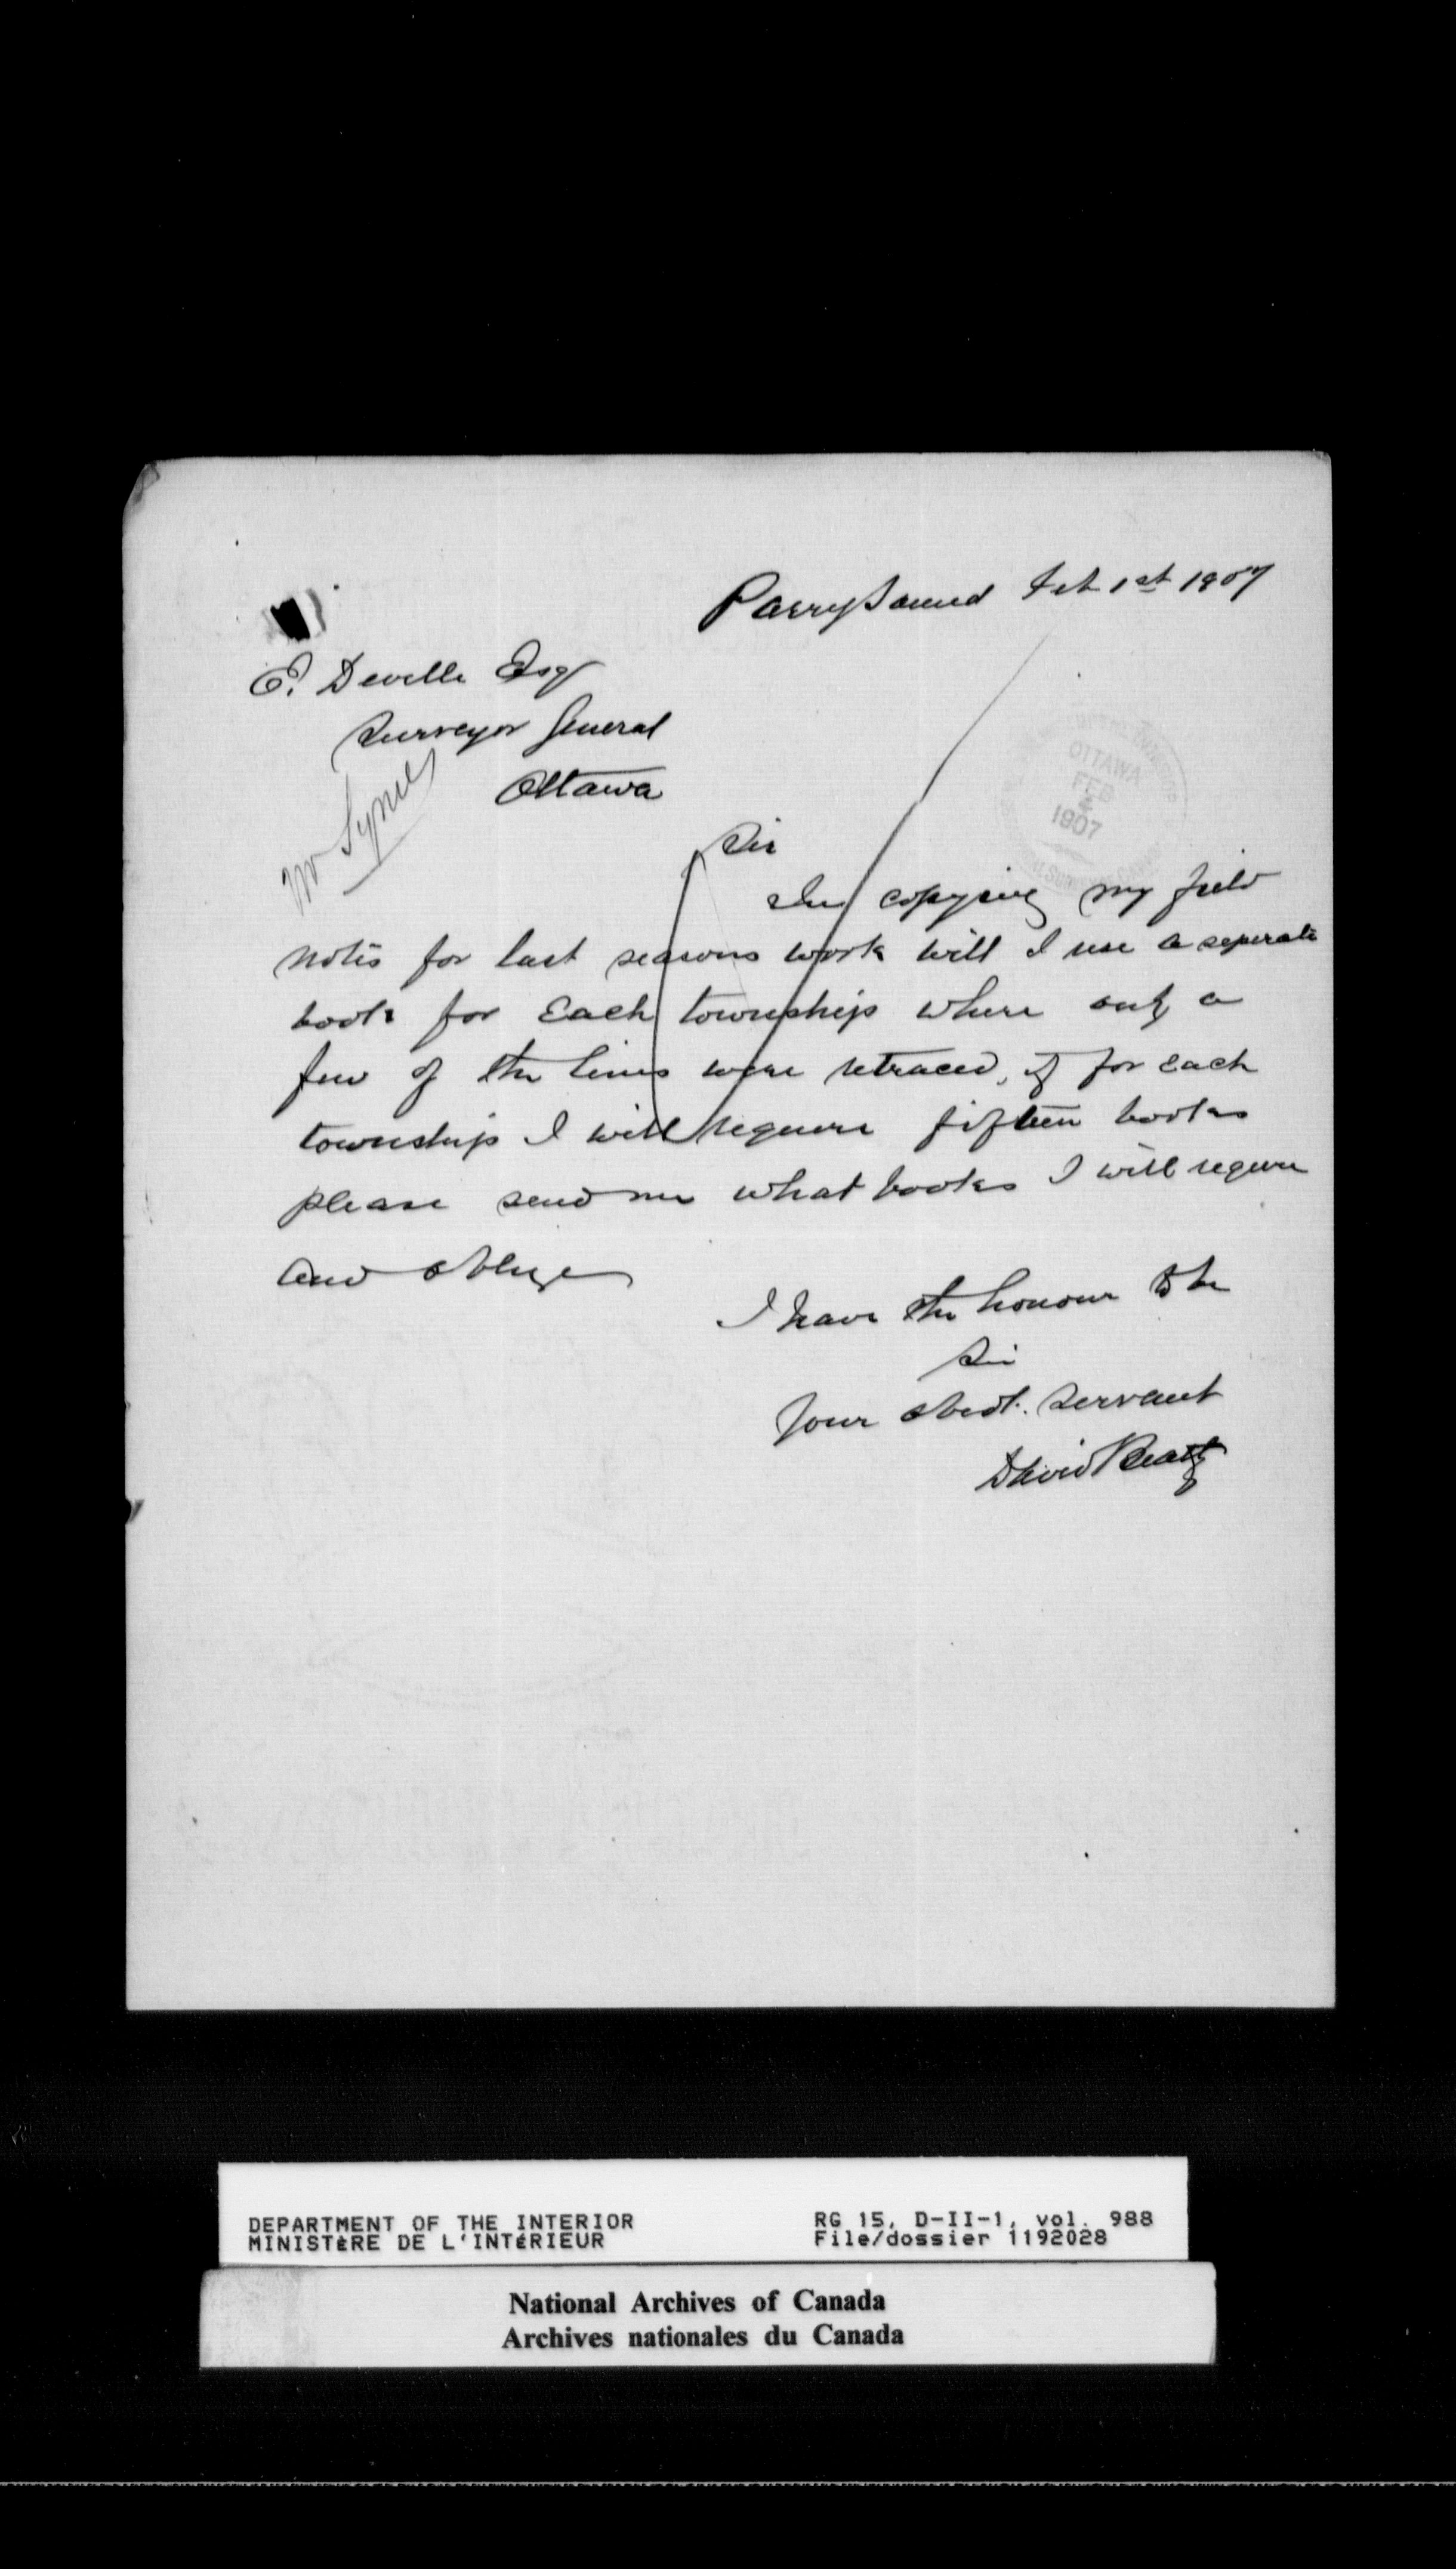 Parry Sound Feb 1st 1907
E. Deville Esq
Surveyor General
Ottawa
Mr Symes
OTTAWA
FEB
1907
Sir
In copying my field
notes for last seasons work will I use a seperate
book for Each township where only a
few of the lines were retraced, if for each
township I will require fifteen books
please send me what books I will require
and oblige
I have the honour to be
Sir
Your obedt. Servant
David Beatty
DEPARTMENT OF THE INTERIOR
MINISTÈRE DE L'INTÉRIEUR
RG 15, D-II-1, vol. 988
File/dossier 1192028
National Archives of Canada
Archives nationales du Canada